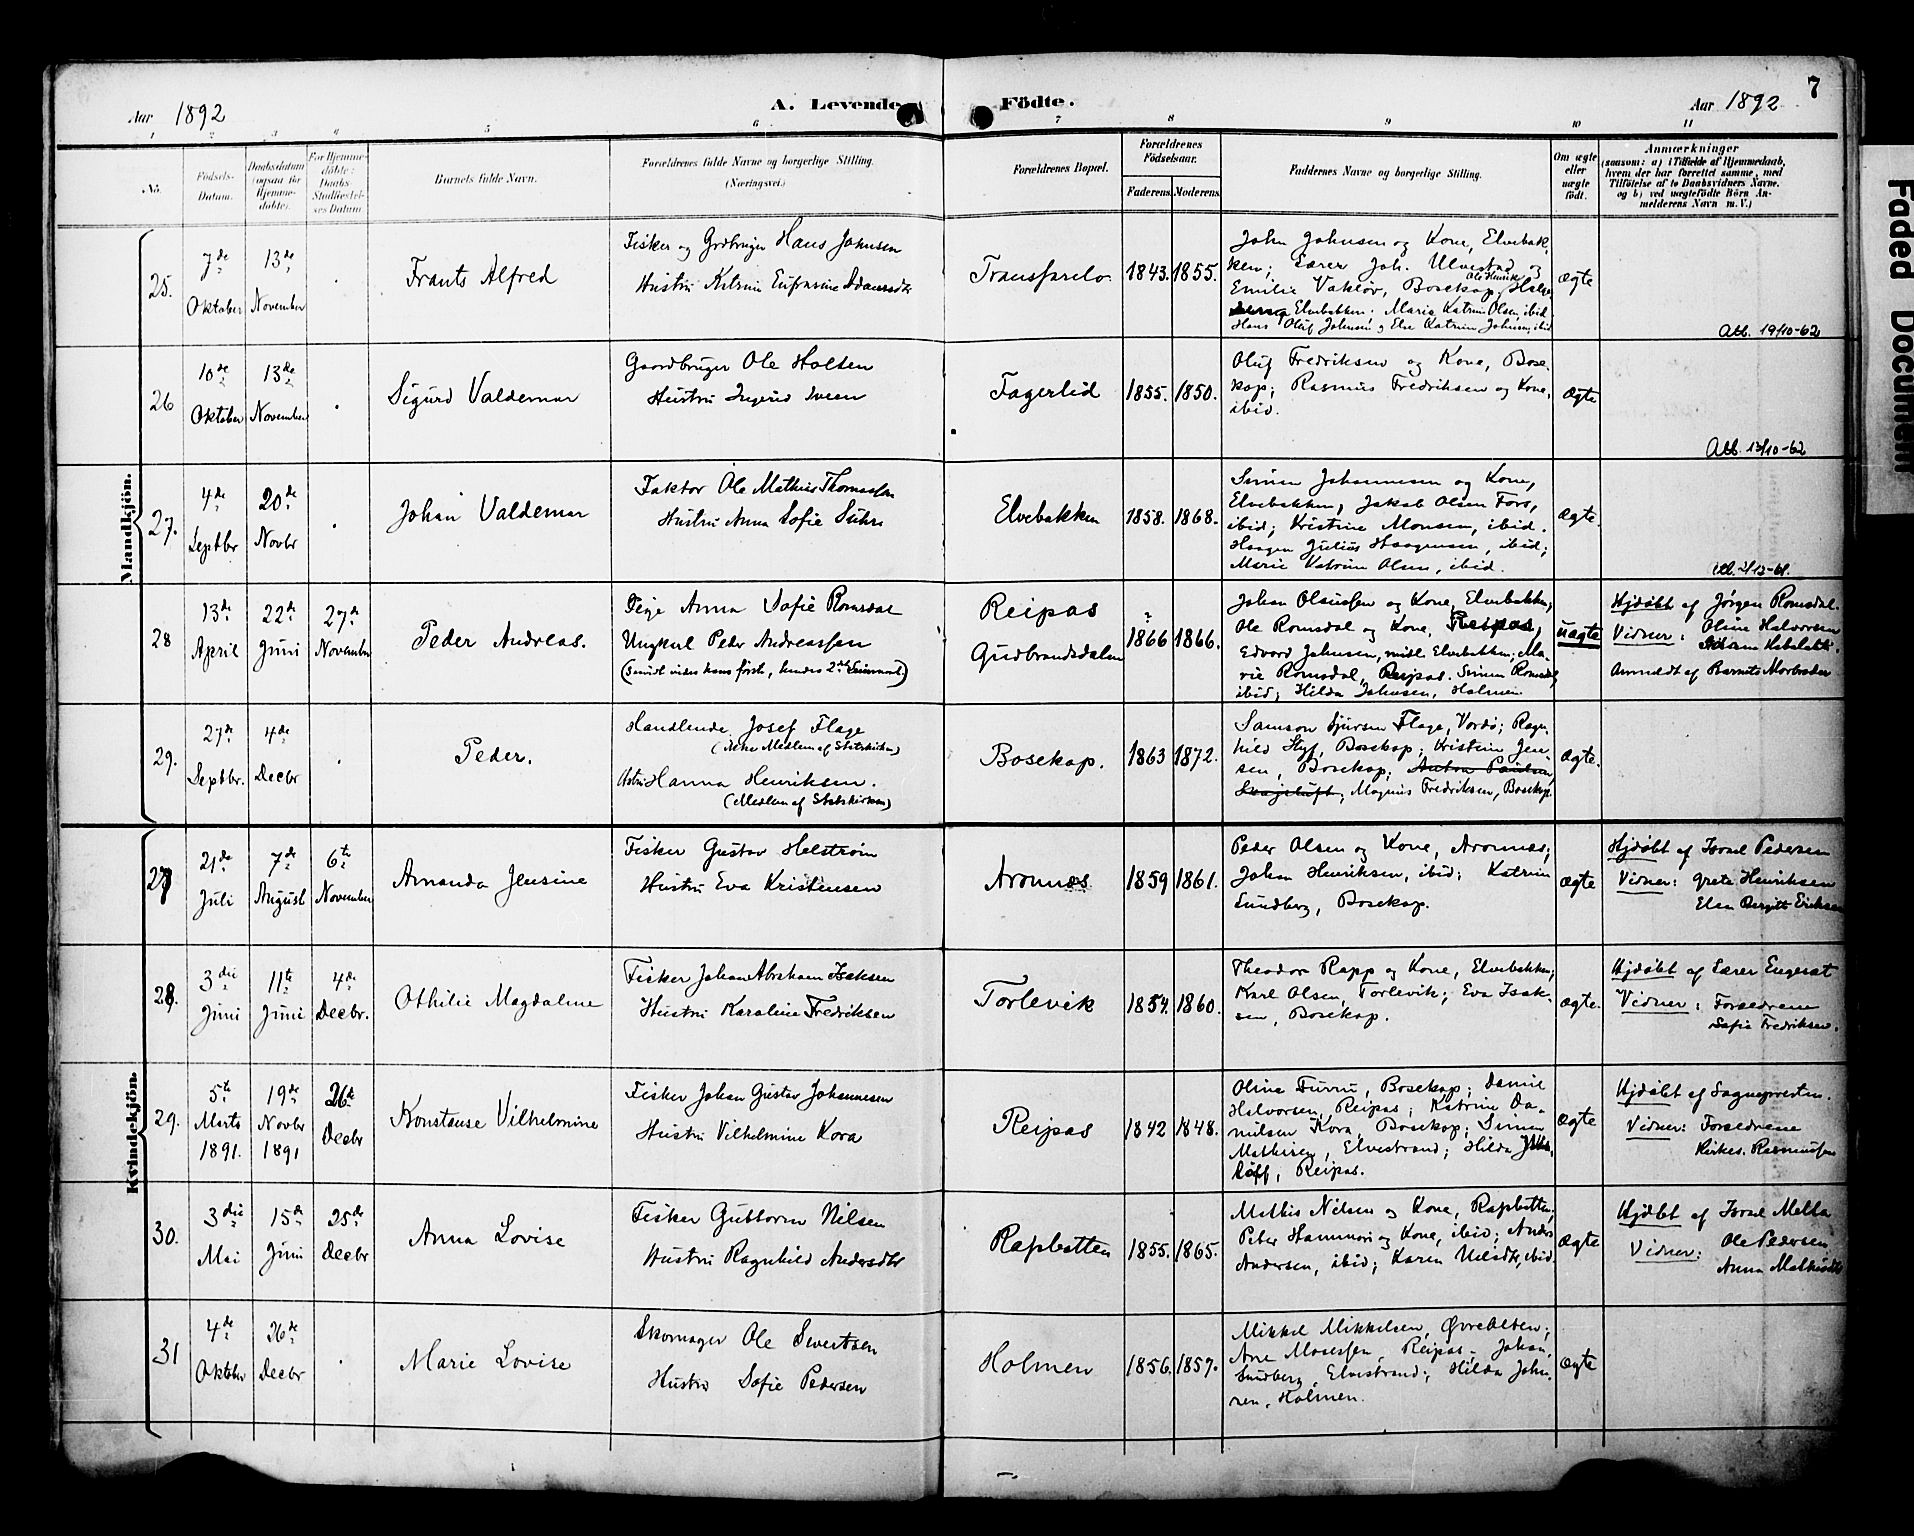 7
Aar 1892
A. Levende
Födte.
Aar 1892
1 2 3 4 5 6 7 8 9 10 11
No.
Födsels-
Datum.
Daabsdatum
(ogsaa for
Hjemme-
döbte).
For Hjemme-
döbte:
Daabs-
Stadfæstel-
ses Datum
Barnets fulde Navn.
Forældrenes fulde Navne og borgerlige Stilling.
(Næringsvei.)
Forældrenes Bopæl.
Forældrenes
Födselsaar.
Faderens.
Moderens.
Faddernes Navne og borgerlige Stilling.
Om ægte
eller
uægte
födt.
Anmærkninger
(saasom: a) i Tilfælde af Hjemmedaab,
hvem der har forrettet samme, med
Tilföielse af to Daabsvidners Navne,
og b) ved uægtefödte Börn An-
melderens Navn m. V.)
Mandkjön.
25.
7de
Oktober
13de
November
Frants Alfred
Fisker og Grdbruger Hans Johnsen
Hustru Katrine Eufrosine Adamsdtr
Transfarelv
1843. 1855.
John Johnsen og Kone, Elvebak-
ken; Lærer Joh. Ulvestad og
Ole Henrik
Emilie Vakløv, Bosekop; Halv-
Elvebakken; Marie Katrine Olsen, ibid.
Hans Oluf Johnsen, Else Katrine Johnsen, ibid
ægte
Att. 19/10-62
26
10de
Oktober
13de
November
Sigurd Valdemar
Gaardbruger Ole Holten
Hustru Ingerid Iversen
Fagerlid
1855. 1850.
Oluf Fredriksen og Kone, Bose-
kop; Rasmus Fredriksen og Kone,
ibid.
ægte
Att. 13/10-62
27.
4de
Septbr
20de
Novbr
Johan Valdemar
Faktor Ole Mathias Thomassen
Hustru Anna Sofie Suhr
Elvebakken
1858. 1868.
Simen Johannesen og Kone,
Elvebakken, Jakob Olsen Fors,
ibid; Kristine Monsen, ibid.
Haagen Julius Haagensen, ibid;
Marie Katrine Olsen, ibid.
ægte.
28
13de
April
22de
Juni
27de
November
Peder Andreas.
Pige Anna Sofie Romsdal
Ungkarl Peder Andreassen
(Smidt vides hans første, hendes 2det Leiermaal.)
Reipas
Gudbrandsdalen
1866 1866.
Johan Olaussen og Kone, Elvebakken;
Ole Romsdal og Kone, Reipas,
Edvard Johnsen, midl. Elvebakken; Ma-
rie Romsdal, Reipas. Simen Romsdal,
ibid; Hilda Johnsen, Holmen
uægte
Hjdøbt af Jørgen Romsdal.
Vidner: Oline Halvorsen
Anmeldt af Barnets Morbroder
29.
27de
Septbr.
4de
Decbr
Peder.
Handlende Josef Flage
(Ikke Medlem af Statskirken)
Hustru Hanna Henriksen.
(Medlem af Statskirken)
Bosekop.
1863 1872.
Samson Sjursen Flage, Vardø; Ragn-
hild Hyf, Bosekop; Kristine Jen-
sen, Bosekop; Anton Paulsen,
Magnus Fredriksen, Bosekop.
ægte.
Kvindekjön.
27
21de
Juli
7de
August
6te
November
Amanda Jensine
Fisker Gustav Helstrøm
Hustru Eva Kristensen
Aronnes
1859 1861.
Peder Olsen og Kone, Aronnes;
Johan Henriksen, ibid; Katrine
Sundberg, Bosekop.
ægte
Hjdøbt af Israel Pedersen
Vidner: Grete Henriksen
Elen Bergitte Eriksen
28.
3die
Juni
11te
Juni
4de
Decbr.
Othilie Magdalene
Fisker Johan Abraham Isaksen
Hustru Karoline Fredriksen
Torlevik
1854. 1860.
Theodor Rapp og Kone, Elvebakken;
Karl Olsen, Torlevik; Eva Isak-
sen, Bosekop.
ægte.
Hjdøbt af Lærer Engesat
Vidner: Forældrene
Sofie Fredriksen.
29.
5te
Marts
1891.
19de
Novbr
1891
26de
Decbr
Konstanse Vilhelmine
Fisker Johan Gustav Johannesen
Hustru Vilhelmine Kora
Reipas
1842 1848.
Olina Furru, Bosekop; Daniel
Halvorsen, Reipas; Katrine Da-
nielsen Kora, Bosekop; Simen
Mathisen, Elvestrand; Hilda
Reipas.
ægte
Hjdøbt af Sognepresten.
Vidner: Forældrene
Kirkes. Rasmussen
30.
3die
Mai
15de
Juni
25de
Decbr
Anna Lovise
Fisker Guttorm Nilsen
Hustru Ragnhild Andersdtr
Rapbotten
1855. 1865.
Mathis Nilsen og Kone, Rapbotten;
Peter Hammari og Kone, ibid; Anders
Andersen, ibid; Karen Nilsdtr, ibid
ægte
Hjdøbt af Israel Mella
Vidner: Ole Pedersen
Anna Mathisdtr
31
4de
Oktober
26de
Decbr
Marie Lovise
Skomager Ole Sivertsen
Hustru Sofie Pedersen
Holmen
1856. 1857.
Mikkel Mikkelsen, ØvreAlten;
Arne Mosessen, Reipas. Johan
Sundberg, Elvestrand; Hilda John-
sen, Holmen.
ægte
Faded Document